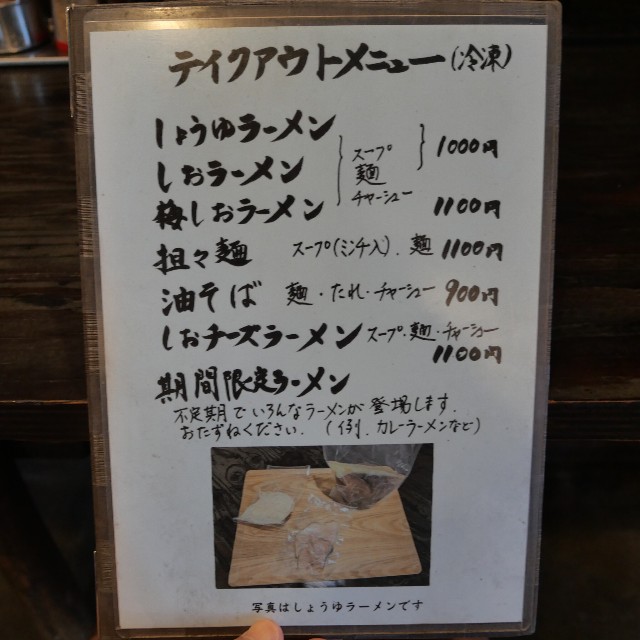 テイクアウトメニュー(冷凍)
しょうゆラーメン
しおラーメン
スープ
麺
チャーシュー
1000円
梅しおラーメン 1100円
担々麺 スープ(ミンチ入)、麺 1100円
油そば 麺・たれ・チャーシュー 900円
しおチーズラーメン スープ・麺・チャーシュー
1100円
期間限定ラーメン
不定期でいろんなラーメンが登場します。
おたずねください。(例、カレーラーメンなど)
写真はしょうゆラーメンです